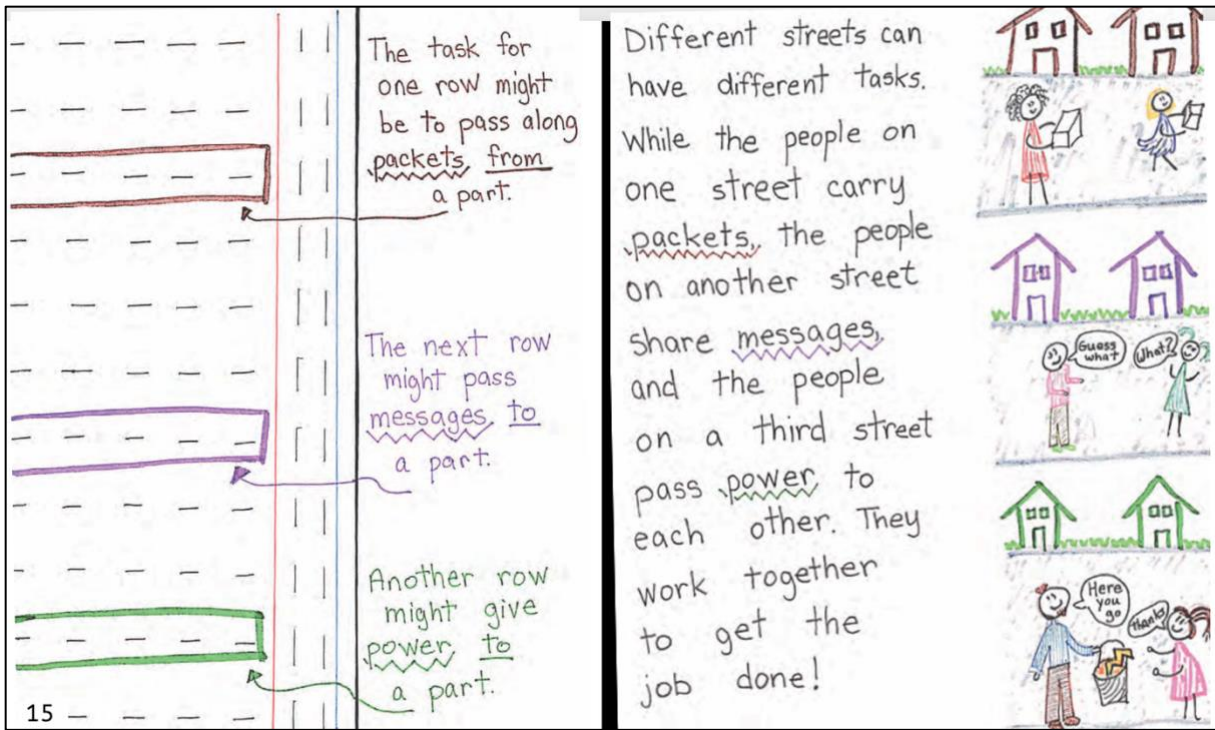 The task for
one row might
be to pass along
packets from
a part.
The next row
might pass
messages to
a part.
Another row
might give
power to
a part.
15
Different streets can
have different tasks.
While the people on
one street carry
packets, the people
on another street
share messages,
and the people
on a third street
pass power to
each other. They
work together
to get the
job done!
Guess
what
What?
Here
you
go
Thanks!